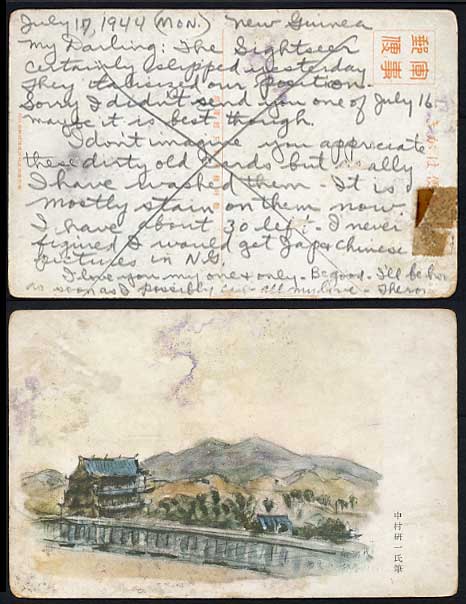 July 17, 1944 (MON.) New Guinea
My Darling: The Sightseer
certainly slipped yesterday
They italicized our position.
Sorry I didn't send you one of July 16
maybe it is best though.
I don't imagine you appreciate
these dirty old cards but really
I have washed them. It is
mostly stain on them now.
I have about 30 left. I never
figured I would get Jap & Chinese
pictures in N.G.
I love you my one & only. Be good. I'll be home
as soon as I possibly can. all my love. Theron
軍事
郵便
中村研一氏筆